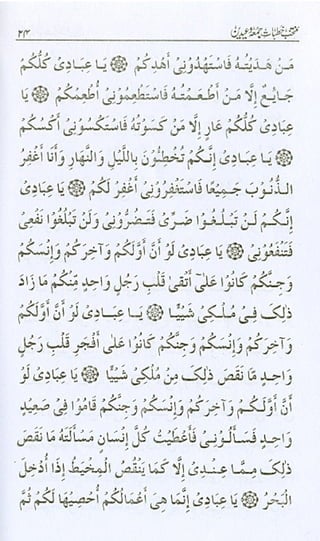 منتخب خطبات جمعہ وعیدین ۲۴
مَنْ هَدَيْتُهُ فَاسْتَهْدُوْنِيْٓ أَهْدِكُمْ ۞ يَا عِبَادِيْ كُلُّكُمْ
جَائِعٌ إِلَّا مَنْ أَطْعَمْتُهُ فَاسْتَطْعِمُوْنِيْٓ أُطْعِمْكُمْ ۞ يَا
عِبَادِيْ كُلُّكُمْ عَارٍ إِلَّا مَنْ كَسَوْتُهُ فَاسْتَكْسُوْنِيْٓ أَكْسُكُمْ
۞ يَا عِبَادِيْ إِنَّكُمْ تُخْطِئُوْنَ بِاللَّيْلِ وَالنَّهَارِ وَأَنَا أَغْفِرُ
الذُّنُوْبَ جَمِيْعًا فَاسْتَغْفِرُوْنِيْٓ أَغْفِرْ لَكُمْ ۞ يَا عِبَادِيْٓ
إِنَّكُمْ لَنْ تَبْلُغُوْا ضَرِّيْ فَتَضُرُّوْنِيْ وَلَنْ تَبْلُغُوْا نَفْعِيْ
فَتَنْفَعُوْنِيْ ۞ يَا عِبَادِيْ لَوْ أَنَّ أَوَّلَكُمْ وَآخِرَكُمْ وَإِنْسَكُمْ
وَجِنَّكُمْ كَانُوْا عَلٰٓى أَتْقٰى قَلْبِ رَجُلٍ وَاحِدٍ مِّنْكُمْ مَا زَادَ
ذٰلِكَ فِيْ مُلْكِيْ شَيْئًا ۞ يَا عِبَادِيْ لَوْ أَنَّ أَوَّلَكُمْ
وَآخِرَكُمْ وَإِنْسَكُمْ وَجِنَّكُمْ كَانُوْا عَلٰى أَفْجَرِ قَلْبِ رَجُلٍ
وَاحِدٍ مَّا نَقَصَ ذٰلِكَ مِنْ مُلْكِيْ شَيْئًا ۞ يَا عِبَادِيْ لَوْ
أَنَّ أَوَّلَكُمْ وَآخِرَكُمْ وَإِنْسَكُمْ وَجِنَّكُمْ قَامُوْا فِيْ صَعِيْدٍ
وَاحِدٍ فَسَأَلُوْنِيْ فَأَعْطَيْتُ كُلَّ إِنْسَانٍ مَسْأَلَتَهُ مَا نَقَصَ
ذٰلِكَ مِمَّا عِنْدِيْٓ إِلَّا كَمَا يَنْقُصُ الْمِخْيَطُ إِذَا أُدْخِلَ
الْبَحْرَ ۞ يَا عِبَادِيْ إِنَّمَا هِيَ أَعْمَالُكُمْ أُحْصِيْهَا لَكُمْ ثُمَّ